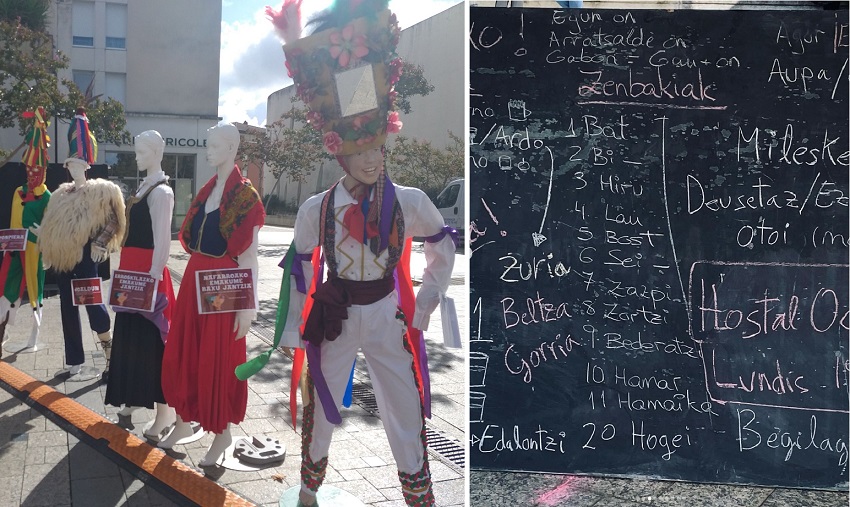 RICOLE
NAFARROAKO
EMAKUME
BATU JANTZIA
!
Egun on
Arratsalde on
Gabon = Gau-on
Zenbakiak
Agur
Aupa/
/Ardo
1 Bat
2 Bi
3 Hiru
4 Lau
5 Bost
6 Sei
7 Zazpi
8 Zortzi
9 Bederatzi
10 Hamar
11 Hamaika
20 Hogei
Zuria
Beltza
Gorria
Edalontzi
Mileske
Deusetaz/Ez
Otoi
Hostal
Lundis
Begilag